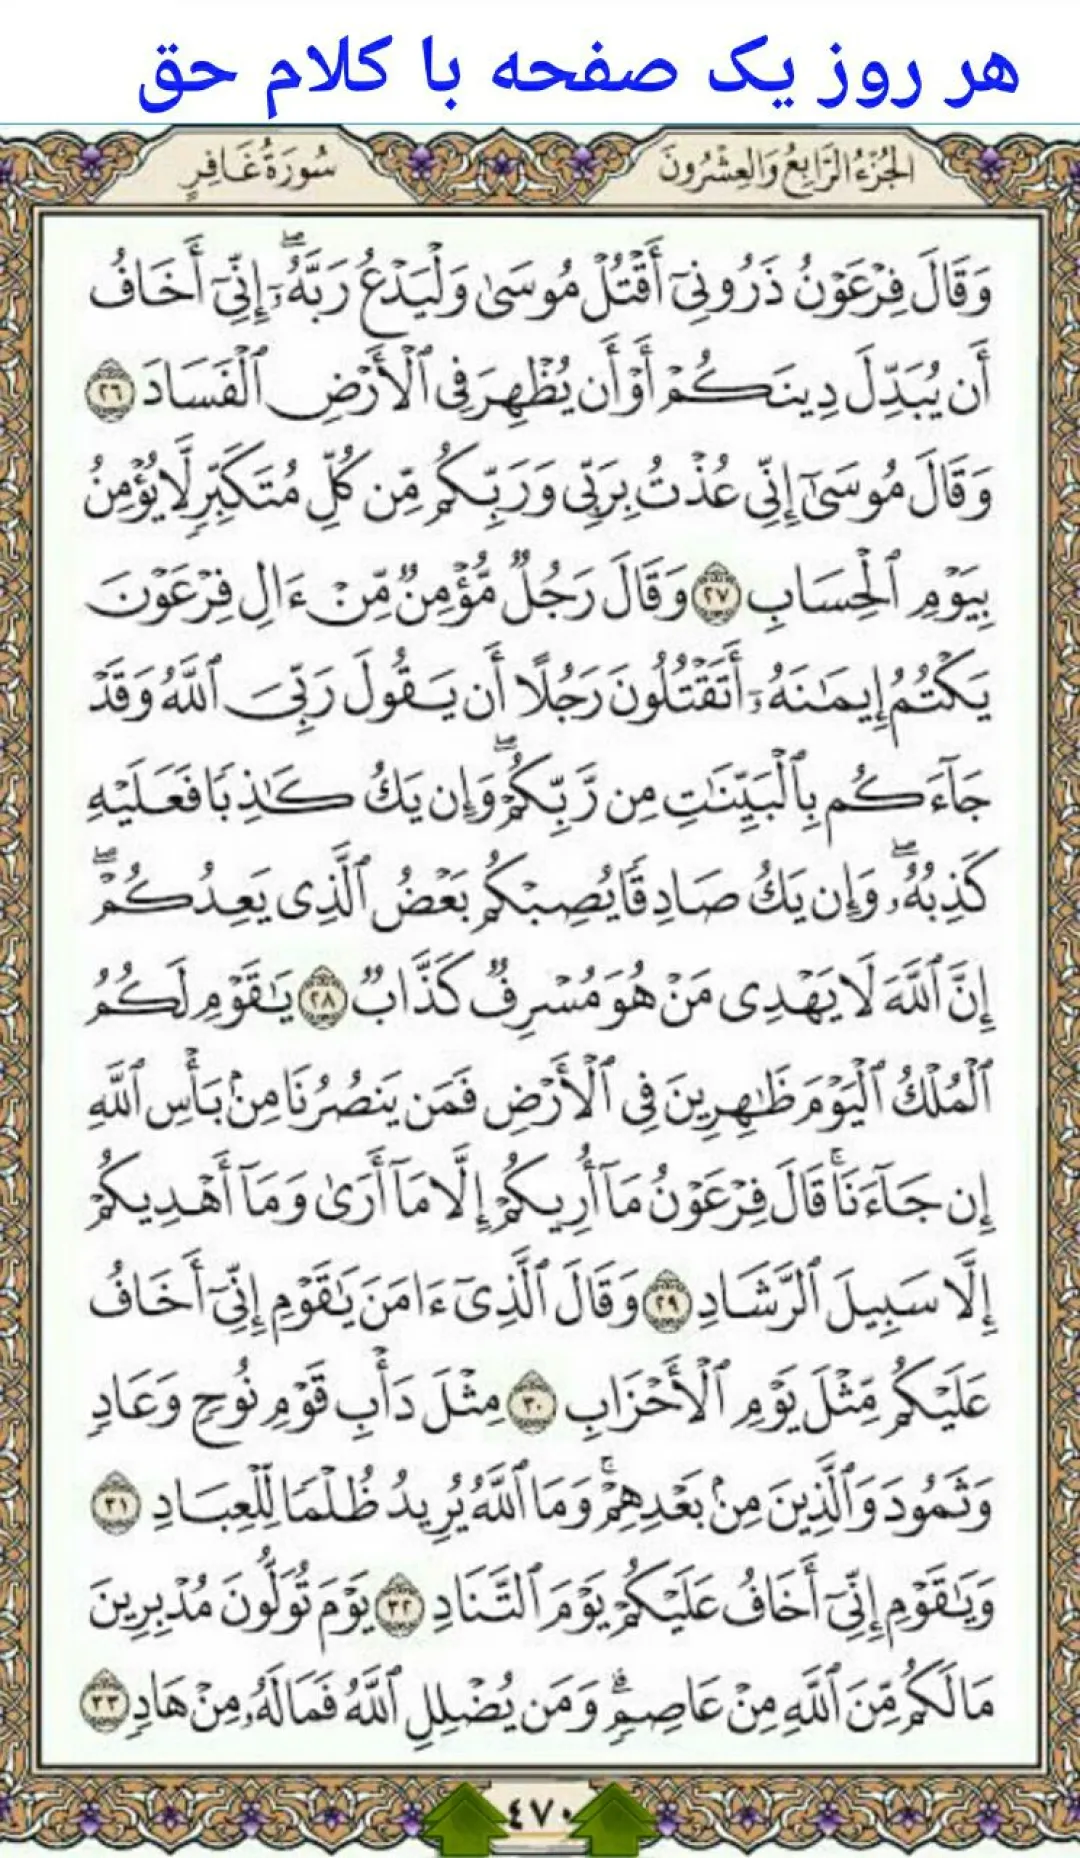 هر روز یک صفحه با کلام حق
الجُزْءُ الرَّابِعُ وَالعِشْرُونَ
سُورَةُ غَافِرٍ
وَقَالَ فِرْعَوْنُ ذَرُونِىٓ أَقْتُلْ مُوسَىٰ وَلْيَدْعُ رَبَّهُۥٓ ۖ إِنِّىٓ أَخَافُ
أَن يُبَدِّلَ دِينَكُمْ أَوْ أَن يُظْهِرَ فِى ٱلْأَرْضِ ٱلْفَسَادَ ٢٦
وَقَالَ مُوسَىٰٓ إِنِّى عُذْتُ بِرَبِّى وَرَبِّكُم مِّن كُلِّ مُتَكَبِّرٍ لَّا يُؤْمِنُ
بِيَوْمِ ٱلْحِسَابِ ٢٧ وَقَالَ رَجُلٌ مُّؤْمِنٌ مِّنْ ءَالِ فِرْعَوْنَ
يَكْتُمُ إِيمَـٰنَهُۥٓ أَتَقْتُلُونَ رَجُلًا أَن يَقُولَ رَبِّىَ ٱللَّهُ وَقَدْ
جَآءَكُم بِٱلْبَيِّنَـٰتِ مِن رَّبِّكُمْ ۖ وَإِن يَكُ كَـٰذِبًا فَعَلَيْهِ
كَذِبُهُۥ ۖ وَإِن يَكُ صَادِقًا يُصِبْكُم بَعْضُ ٱلَّذِى يَعِدُكُمْ ۖ
إِنَّ ٱللَّهَ لَا يَهْدِى مَنْ هُوَ مُسْرِفٌ كَذَّابٌ ٢٨ يَـٰقَوْمِ لَكُمُ
ٱلْمُلْكُ ٱلْيَوْمَ ظَـٰهِرِينَ فِى ٱلْأَرْضِ فَمَن يَنصُرُنَا مِنۢ بَأْسِ ٱللَّهِ
إِن جَآءَنَا ۚ قَالَ فِرْعَوْنُ مَآ أُرِيكُمْ إِلَّا مَآ أَرَىٰ وَمَآ أَهْدِيكُمْ
إِلَّا سَبِيلَ ٱلرَّشَادِ ٢٩ وَقَالَ ٱلَّذِىٓ ءَامَنَ يَـٰقَوْمِ إِنِّىٓ أَخَافُ
عَلَيْكُم مِّثْلَ يَوْمِ ٱلْأَحْزَابِ ٣٠ مِثْلَ دَأْبِ قَوْمِ نُوحٍ وَعَادٍ
وَثَمُودَ وَٱلَّذِينَ مِنۢ بَعْدِهِمْ ۚ وَمَا ٱللَّهُ يُرِيدُ ظُلْمًا لِّلْعِبَادِ ٣١
وَيَـٰقَوْمِ إِنِّىٓ أَخَافُ عَلَيْكُمْ يَوْمَ ٱلتَّنَادِ ٣٢ يَوْمَ تُوَلُّونَ مُدْبِرِينَ
مَا لَكُم مِّنَ ٱللَّهِ مِنْ عَاصِمٍ ۗ وَمَن يُضْلِلِ ٱللَّهُ فَمَا لَهُۥ مِنْ هَادٍ ٣٣
٤٧٠